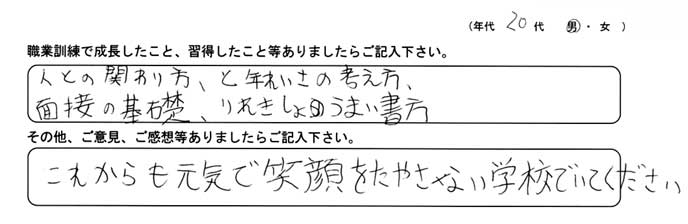 （年代 20 代 男・女 ）
職業訓練で成長したこと、習得したこと等ありましたらご記入下さい。
人との関わり方、と年れいさの考え方、
面接の基礎、りれきしょのうまい書方
その他、ご意見、ご感想等ありましたらご記入下さい。
これからも元気で笑顔をたやさない学校でいてください